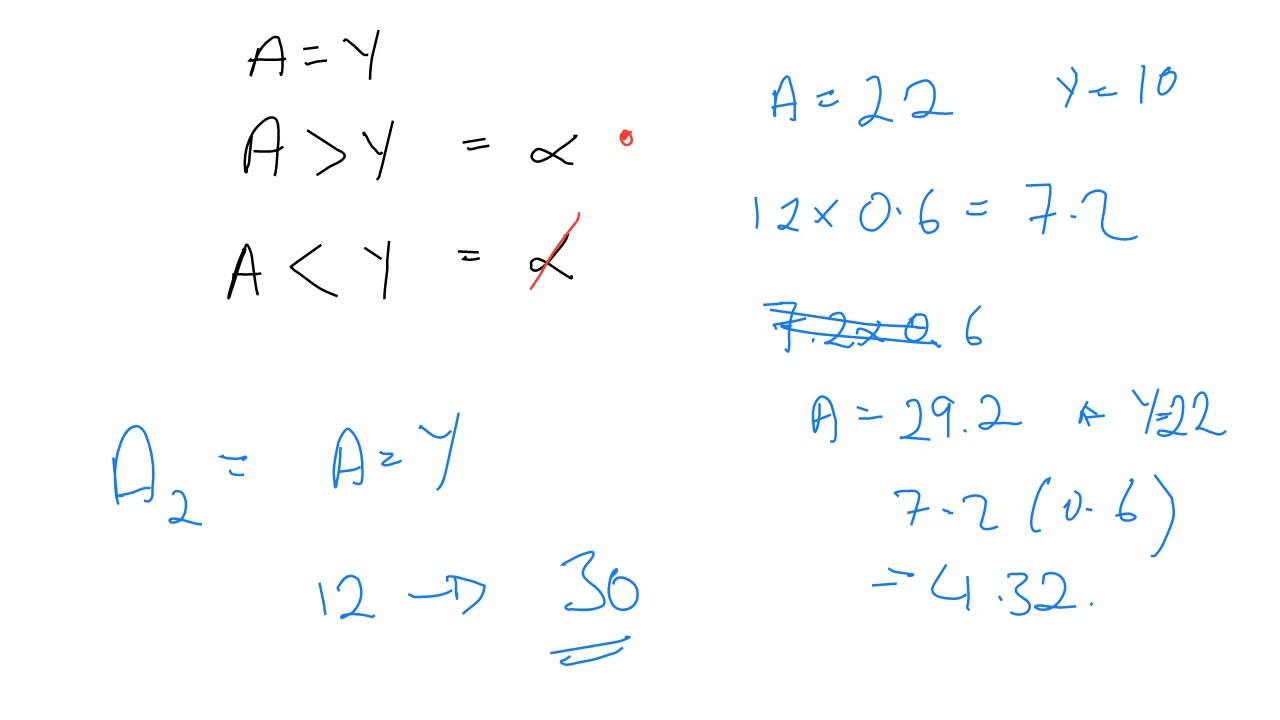 A = Y
A > Y = α
A < Y = α
A₂ = A = Y
12 → 30
A = 22 Y = 10
12 × 0.6 = 7.2
7.2 × 0.6
A = 29.2 Y = 22
7.2 (0.6)
= 4.32.